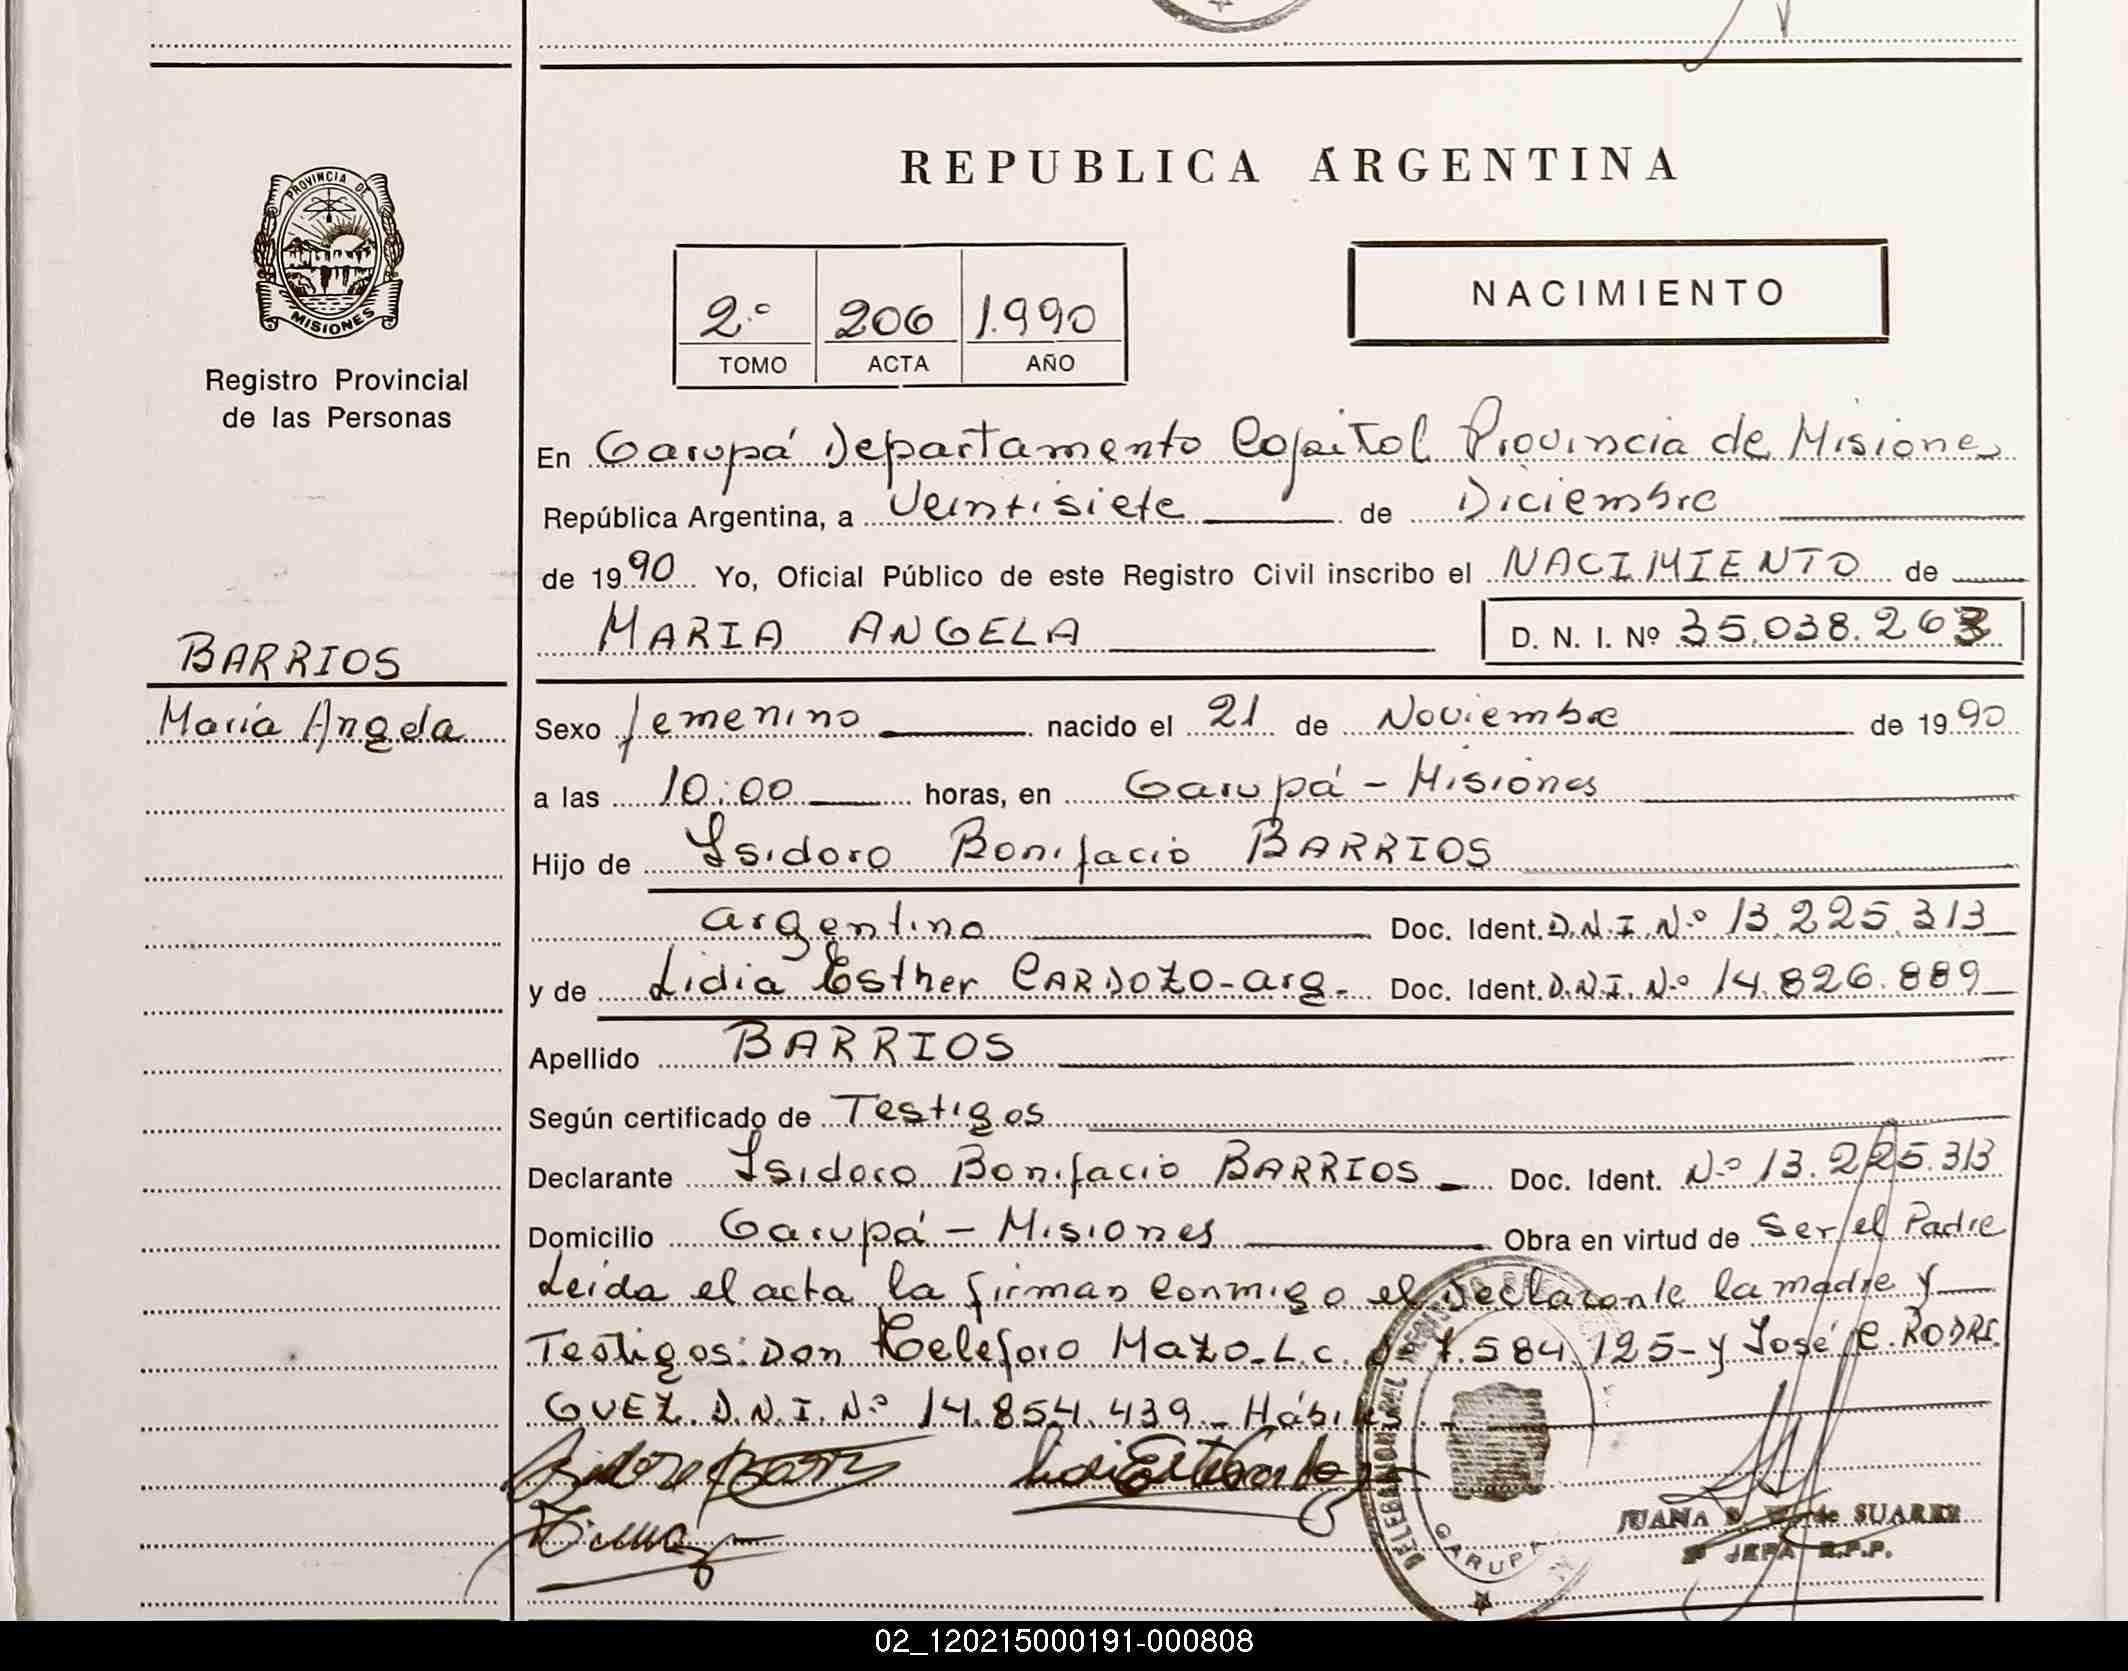 REPUBLICA ARGENTINA
PROVINCIA DE
MISIONES
Registro Provincial
de las Personas
2.º 206 1.990
TOMO ACTA AÑO
NACIMIENTO
En Garupá Departamento Capital Provincia de Misiones
República Argentina, a Veintisiete de Diciembre
de 1990 Yo, Oficial Público de este Registro Civil inscribo el NACIMIENTO de
MARIA ANGELA D. N. I. Nº 35.038.263
BARRIOS
María Angela
Sexo femenino nacido el 21 de Noviembre de 1990
a las 10:00 horas, en Garupá - Misiones
Hijo de Isidoro Bonifacio BARRIOS
argentino Doc. Ident. D.N.I. N.º 13.225.313
y de Lidia Esther CARDOZO-arg. Doc. Ident. D.N.I. N.º 14.826.889
Apellido BARRIOS
Según certificado de Testigos
Declarante Isidoro Bonifacio BARRIOS Doc. Ident. N.º 13.225.313
Domicilio Garupá - Misiones Obra en virtud de Ser el Padre
Leída el acta la firman conmigo el Declarante la madre y
Testigos: Don Teleforo Mazo-L.c. 7.584.125- y José C. RODRI.
GUEZ. D.N.I. N.º 14.854.439 - Hábiles
GARUPA
JUANA de SUAREZ
JEFA R.P.P.
02_120215000191-000808